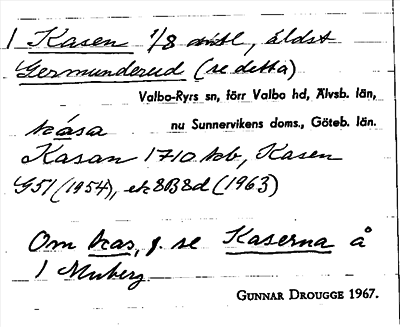 1 Kasen 1/8 mtl, äldst
Germunderud (se detta)
Valbo-Ryrs sn, förr Valbo hd, Älvsb. län,
kása nu Sunnervikens doms., Göteb. län.
Kasan 1710 kb, Kasen
G51 (1954), ek 8B8d (1963)
Om kas, f. se Kaserna å
1 Muberg
GUNNAR DROUGGE 1967.